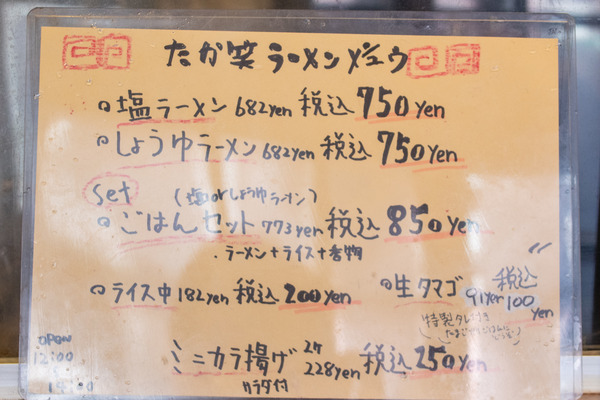 たか笑ラーメンメニュウ
塩ラーメン 682yen 税込 750yen
しょうゆラーメン 682yen 税込 750yen
set (塩orしょうゆラーメン)
ごはんセット 773yen 税込 850yen
・ラーメン+ライス+香物
ライス中 182yen 税込 200yen
生タマゴ 91yen 税込 100yen
特製タレ付き
たまごかけごはんに
どうぞ
ミニカラ揚げ 2ケ 228yen 税込 250yen
サラダ付
OPEN
12:00